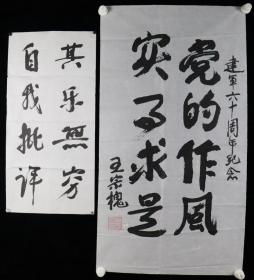 建军六十周年纪念
党的作风
实事求是
王宗槐
其乐无穷
自我批评